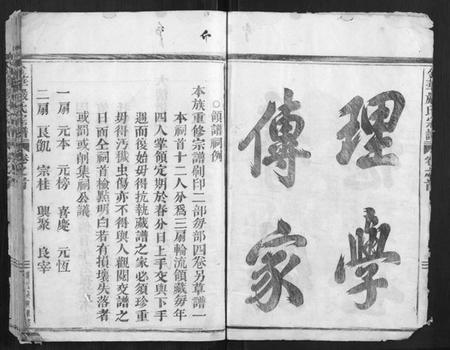 理學
傳家
○領譜祠例
本族重修宗譜刷印二部每部四卷另草譜一
本祠首十二人分爲三扇輪流領藏每年
四人掌領定期於春分日上手交與下手
週而復始毋得抗執藏譜之家必須珍重
毋得污穢虫傷亦不得與人觀閱交譜之
日而全祠首檢點明白若有損壞失落者
或罰或削集祠公議
一扇 元本 元榜 喜慶 元恆
二扇 良凱 宗桂 興聚 良宰